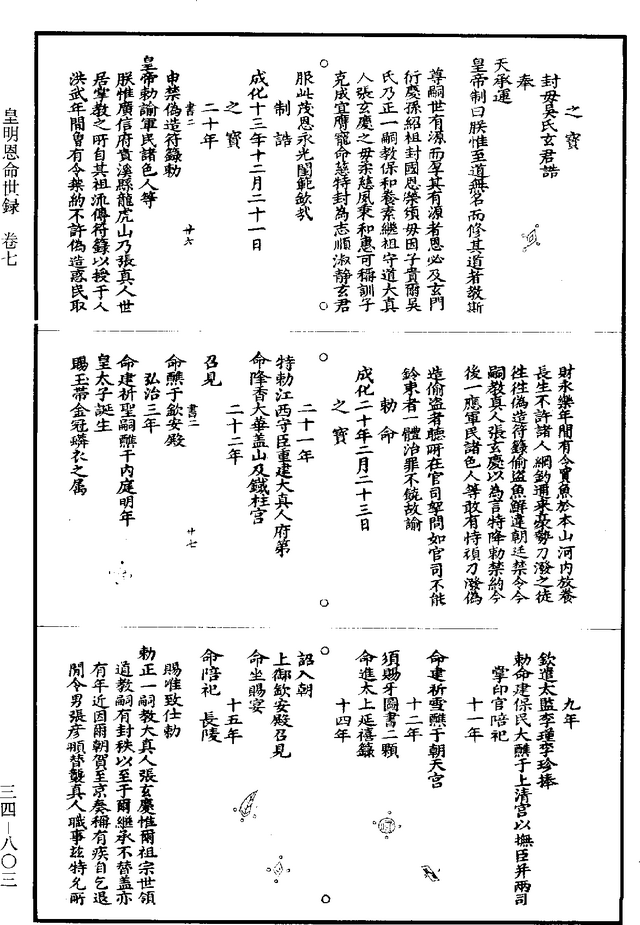 之寶
封毋吳氏玄君誥
奉
天承運
皇帝制曰朕惟至道無名而修其道者教斯
尊嗣世有源而孕其有源者恩必及玄門
衍慶孫紹祖封國恩榮須毋因子貴爾吳
氏乃正一嗣教保和養素繼祖守道大真
人張玄慶之毋柔慈夙秉和惠可稱訓子
克成宜膺寵命玆特封為志順淑静玄君
服此茂恩永光閨範欽哉
制誥
成化十三年十二月二十一日
之寶
二十年
申禁偽造符籙勅
書二 廿六
皇帝勅諭軍民諸色人等
朕惟廣信府貴溪縣龍虎山乃張真人世
居掌教之所自其祖流傳符籙以授于人
洪武年間曾有令禁約不許偽造惑民取
財永樂年間有令買魚於本山河内放養
長生不許諸人網釣邇來豪勢刀潑之徒
徃徃偽造符籙偷盗魚鮮違朝廷禁令今
嗣教真人張玄慶以為言特降勅禁約今
後一應軍民諸色人等敢有恃頑刀潑偽
造偷盗者聴所在官司拏問如官司不能
鈐束者一體治罪不饒故諭
勅命
成化二十年二月二十三日
之寶
二十一年
特勅江西守臣重建大真人府第
命降香大華盖山及鐵柱宫
二十二年
召見
書二 廿七
命醮于欽安殿
弘治三年
命建祈聖嗣醮于内庭明年
皇太子誕生
賜玉帶金冠蟒衣之属
九年
欽遣太監李瑾李珍捧
勅命建保民大醮于上清宫以撫臣并兩司
掌印官陪祀
十一年
命建祈雪醮于朝天宫
十二年
須賜牙圖書二顆
命進太上延禧籙
十四年
詔入朝
上御欽安殿召見
命坐賜宴
十五年
命陪祀 長陵
賜惟致仕勅
勅正一嗣教大真人張玄慶惟爾祖宗世領
道教嗣有封秩以至于爾繼承不替盖亦
有年近因爾朝賀至京奏稱有疾自乞退
閒令男張彦頨替襲真人職事兹特允所
皇明恩命世録 卷七
三四－八〇三